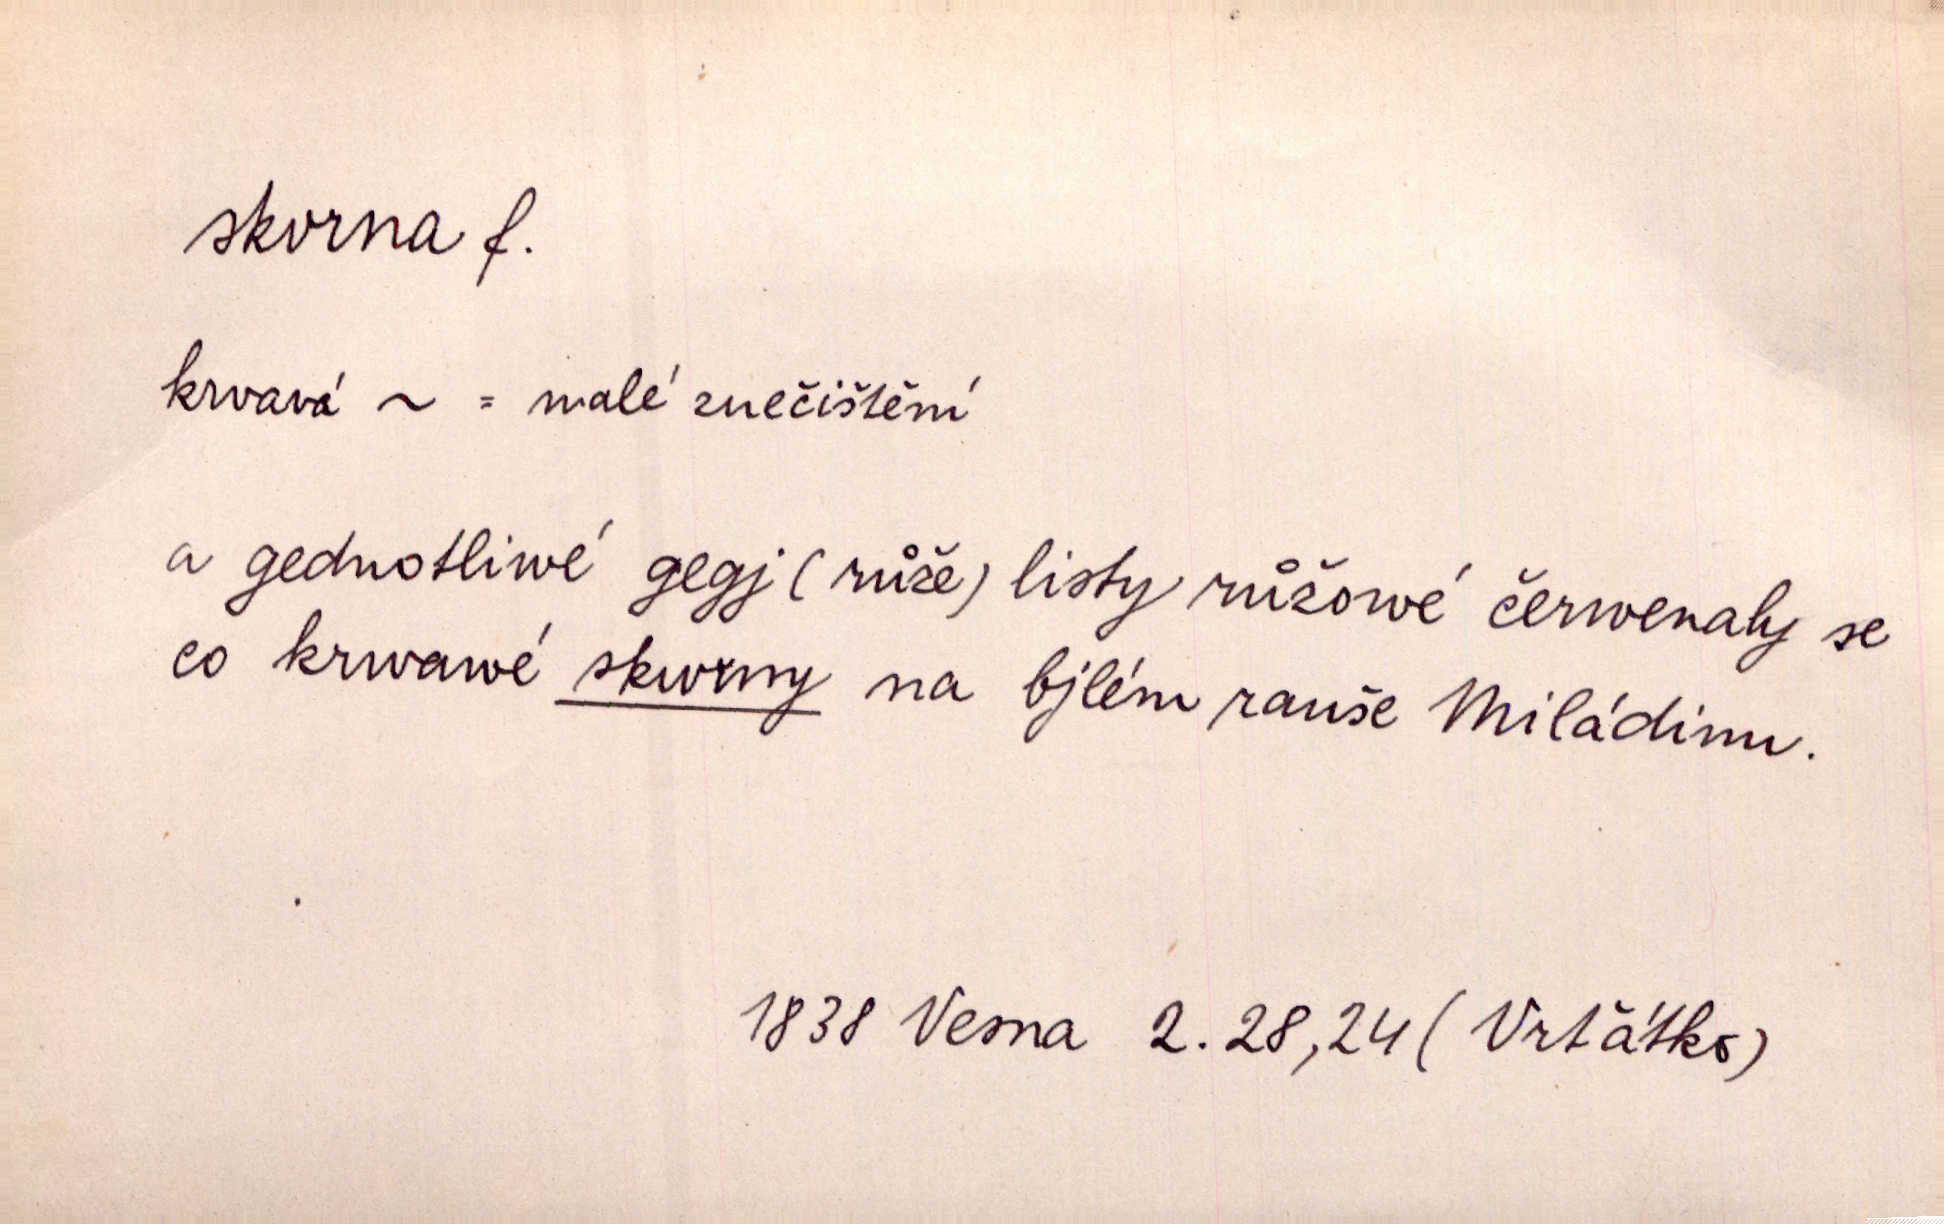 skvrna f.
krvavá ~ = malé znečištění
a gednotliwé gegj (růže) listy růžowé čerwenaly se
co krwawé skwrny na bjlém rauše Miládinu.
1838 Vesna 2.28,24 (Vrťátko)